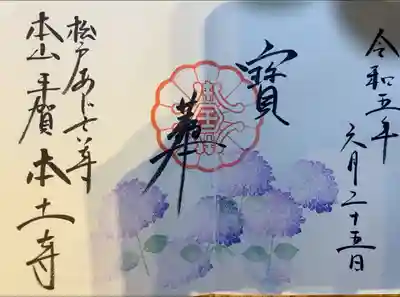 令和五年
六月二十五日
寶華
本土寺
松戸あじさい寺
本山平賀本土寺